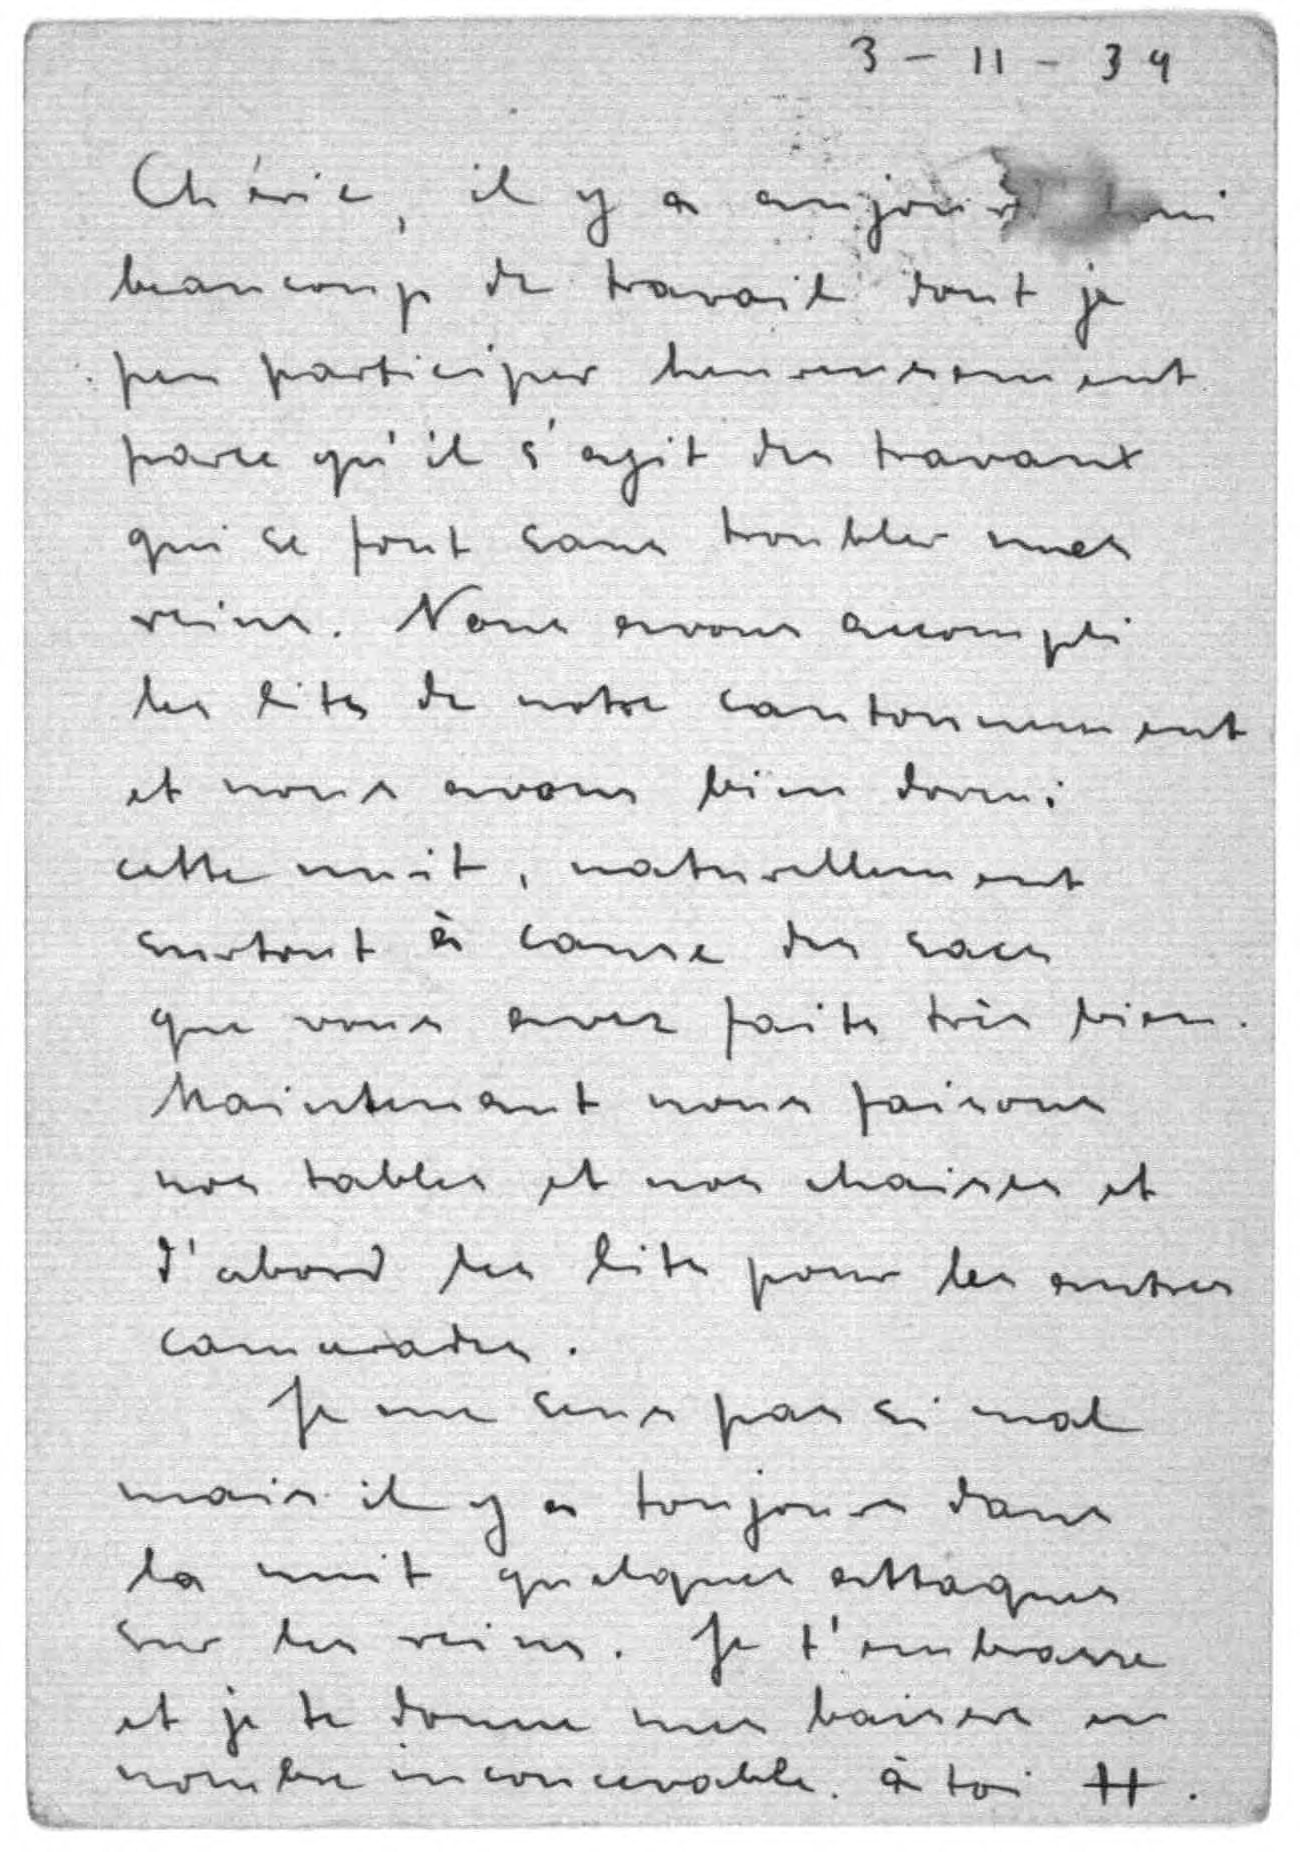 3 - 11 - 39
Chérie, il y a aujourd'hui
beaucoup de travail dont je
peu participer heureusement
parce qu'il s'agit des travaux
qui se font sans troubler mes
reins. Nous avons accompli
les lits de notre cantonnement
et nous avons bien dormi
cette nuit, naturellement
surtout à cause des sacs
que vous avez faits très bien.
Maintenant nous faisons
nos tables et nos chaises et
d'abord les lits pour les autres
camarades.
Je me sens pas si mal
mais il y a toujours dans
la nuit quelques attaques
sur les reins. Je t'embrasse
et je te donne mes baisers en
nombre inconcevable. à toi H.